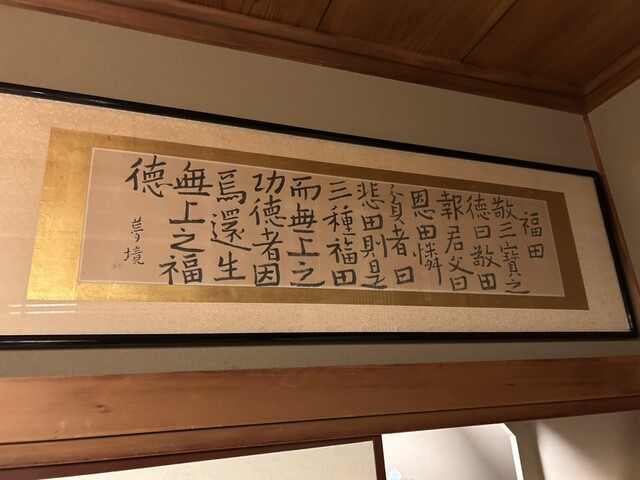 福田
敬三寶之
德曰敬田
報君父曰
恩田憐
貧者曰
悲田則是
三種福田
而無上之
功德者因
爲還生
無上之福
德
夢境